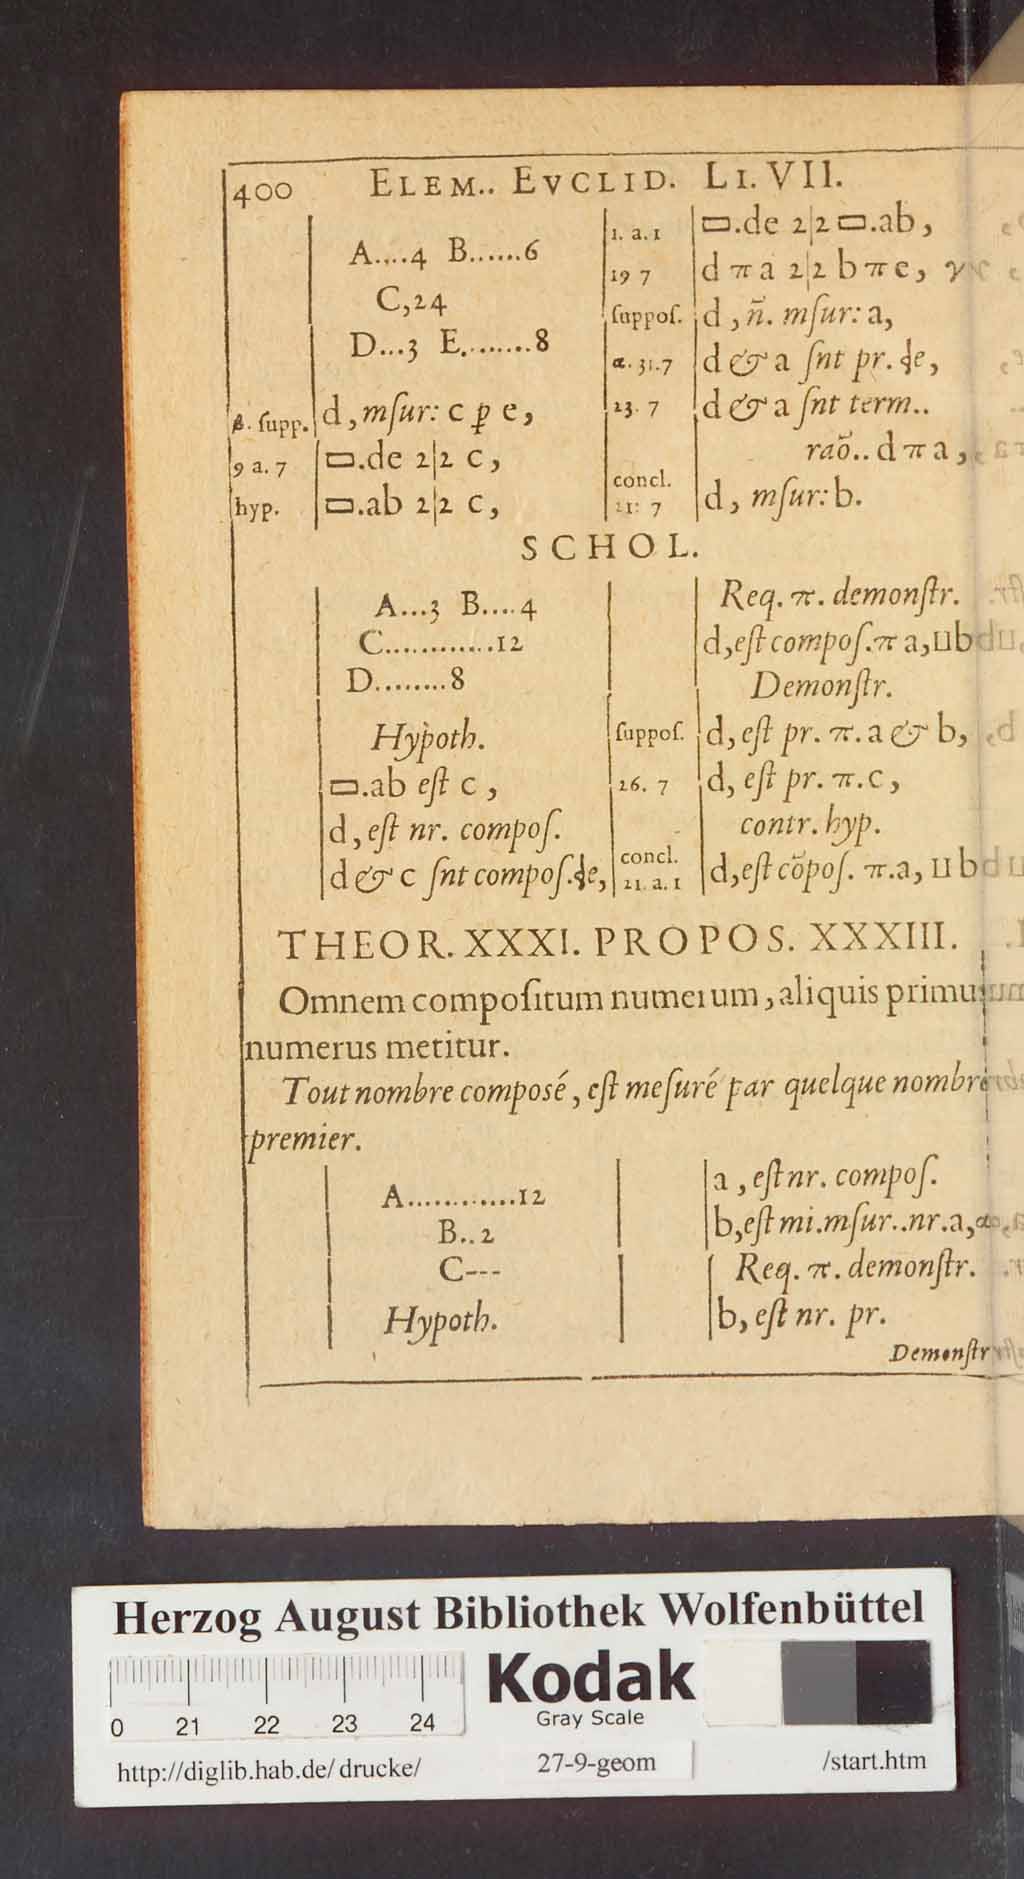 400 ELEM.. EVCLID. LI. VII.
A....4 B......6
C,24
D...3 E........8
β. ſupp. d, mſur: c p̱ e,
9 a. 7 ▭.de 2|2 c,
hyp. ▭.ab 2|2 c,
1. a. 1 ▭.de 2|2 ▭.ab,
19 7 d π a 2|2 b π e,
ſuppoſ. d, ñ. mſur: a,
α. 31.7 d & a ſnt pr.
23. 7 d & a ſnt term..
raõ.. d π a,
concl.
21: 7 d, mſur: b.
SCHOL.
A...3 B....4
C............12
D........8
Hypoth.
▭.ab eſt c,
d, eſt nr. compoſ.
d & c ſnt compoſ.
Req. π. demonſtr.
d, eſt compoſ. π a, ⊔ b
Demonſtr.
ſuppoſ. d, eſt pr. π. a & b,
26. 7 d, eſt pr. π. c,
contr. hyp.
concl.
21. a. 1 d, eſt cõpoſ. π. a, ⊔ b
THEOR. XXXI. PROPOS. XXXIII.
Omnem compoſitum numerum, aliquis primus
numerus metitur.
Tout nombre composé, eſt meſuré par quelque nombre
premier.
A............12
B..2
C---
Hypoth.
a, eſt nr. compoſ.
b, eſt mi. mſur.. nr. a, α
Req. π. demonſtr.
b, eſt nr. pr.
Demonſtr
Herzog August Bibliothek Wolfenbüttel
Kodak
Gray Scale
0 21 22 23 24
http://diglib.hab.de/drucke/ 27-9-geom /start.htm